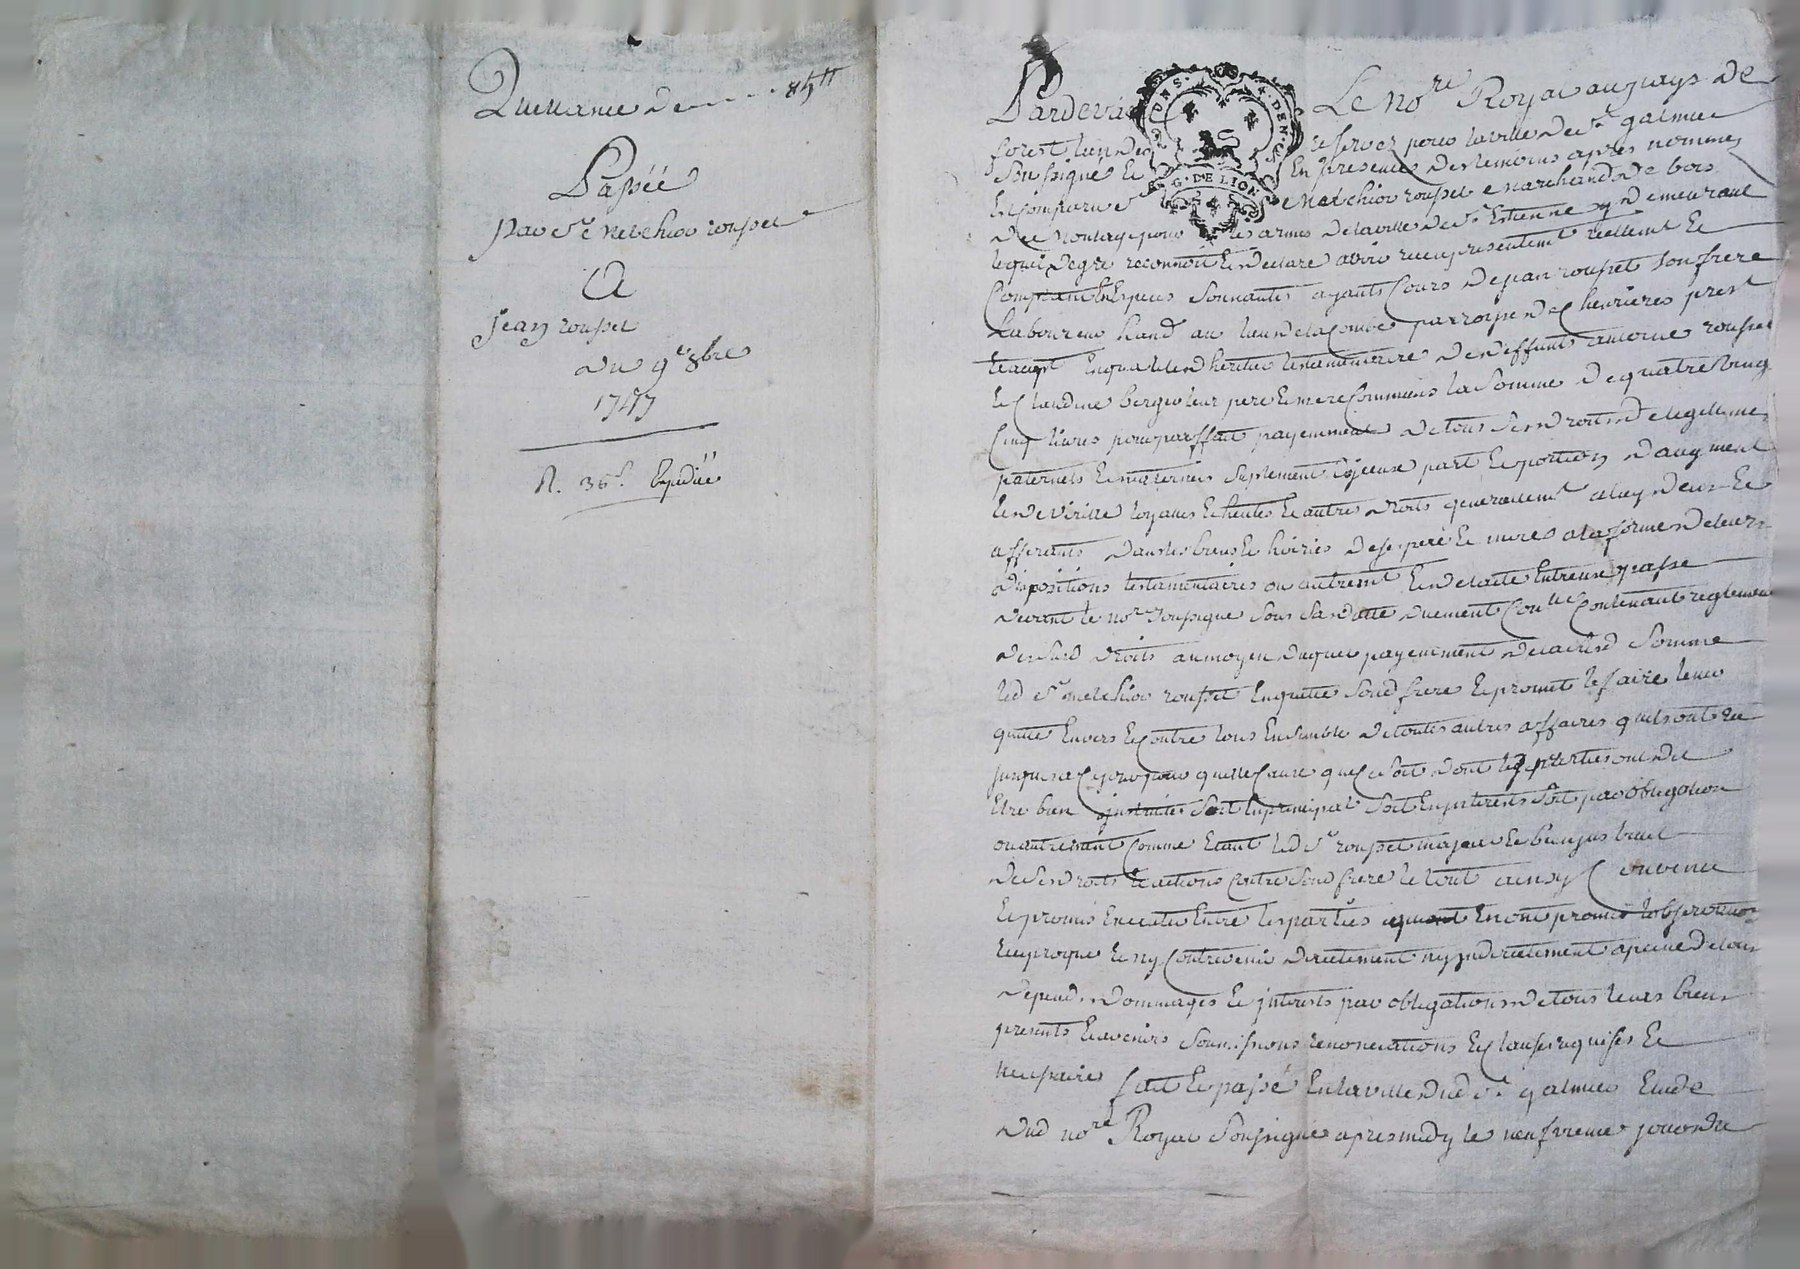 Quittance de - - - 85 ll
Passée
par Sr. Melchior rousset
A
jean rousset
du 9e 8bre
1747
R. 36 s. Expédiée
GEN. DE LION
Pardevant Le no.re Royal au pays de
forest lieu des reservez pour la ville de St. galmier
Soussigné Et En presence des temoins apres nommez
Est comparu Sr. Melchior rousset Marchand de bois
de Montage pour les armes de la ville de St. Estienne y demeurant
lequel de gré reconnoit Et declare avoir receu presentement reellemt Et
Comptant En Especes Sonnantes ayants Cours de jean rousset Son frere
Laboureur hand. au lieu de la Combe parroisse de Chevrieres prest
Et acept. En qualité d'heritier testamentaire de deffunts antoine rousset
Et Claudine bergier leur pere Et mere Communs la Somme de quatre Vingt
Cinq livres pour parffait payemment de tous Ses droits de legitimes
paternels Et maternels Suplement d'iceux part Et portion d'augment
Et de Virille loyaux Echeutes Et autres droits generallemt a luy deus Et
afferants dans les biens Et hoiries de Ses pere Et mere a la forme de leurs
dispositions testamentaires ou autremt Et de l'acte Entreux passé
devant le no.re Soussigné Sous Sa datte duement Con.lle Contenant reglement
des Susd. droits au moyen duquel payemment de lad. Somme
led. Sr. melchior rousset En quitte Sond. frere Et promet le faire tenir
quitte Envers Et Contre tous Ensemble de toutes autres affaires qu'ils ont Eu
jusques a Ce jour pour quelle Cause que Ce Soit dont les parties ont dit
Etre bien instruites Soit En principal Soit En jnterests Soit par obligation
ou autrement Comme Etant led. Sr. rousset majeur Et bien jnstruit
de Ses droits Et actions Contre Sond. frere le tout ainsy Convenu
Et promis Executer Entre les parties qui En ont promis l'observation
reciproque Et ny Contrevenir directement ny jndirectement a peine de tous
depends dommages Et jnterests par obligations de tous leurs biens
presents Et avenirs Soumissions renonciations Et Clauses requises Et
necessaires fait Et passé En la ville dud. St. galmier Etude
dud. no.re Royal Soussigné apres midy le neufvieme jour d'octobre